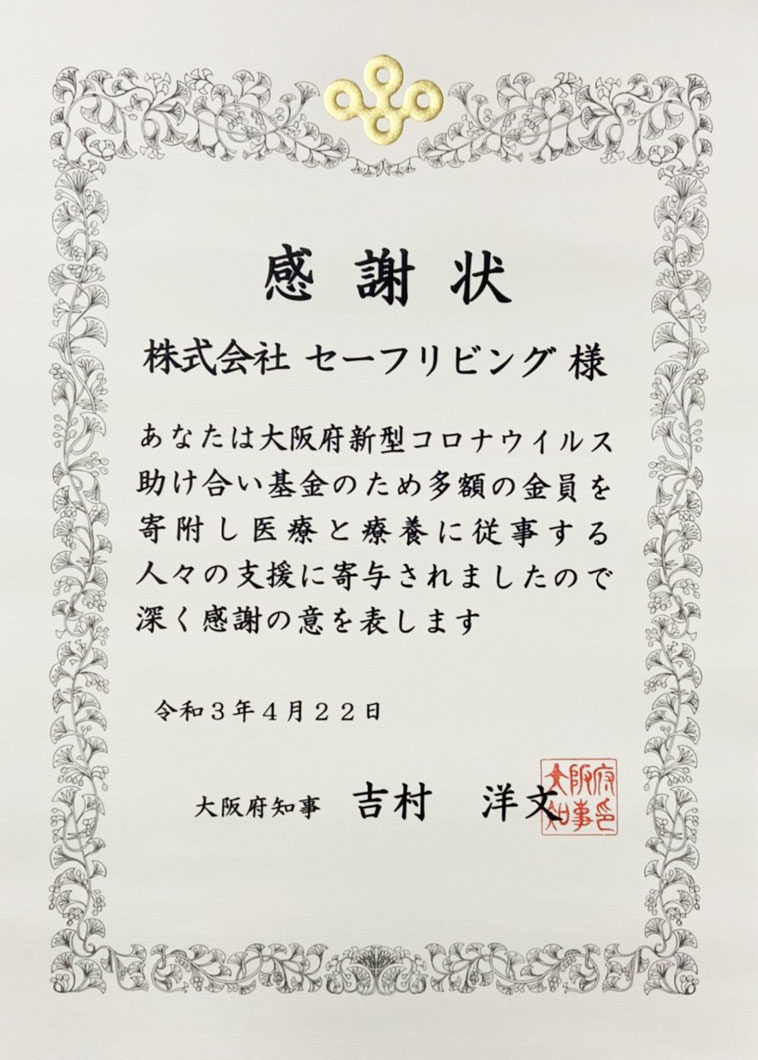 感謝状
株式会社 セーフリビング 様
あなたは大阪府新型コロナウイルス
助け合い基金のため多額の金員を
寄附し医療と療養に従事する
人々の支援に寄与されましたので
深く感謝の意を表します
令和3年4月22日
大阪府知事 吉村 洋文
大阪府
知事印